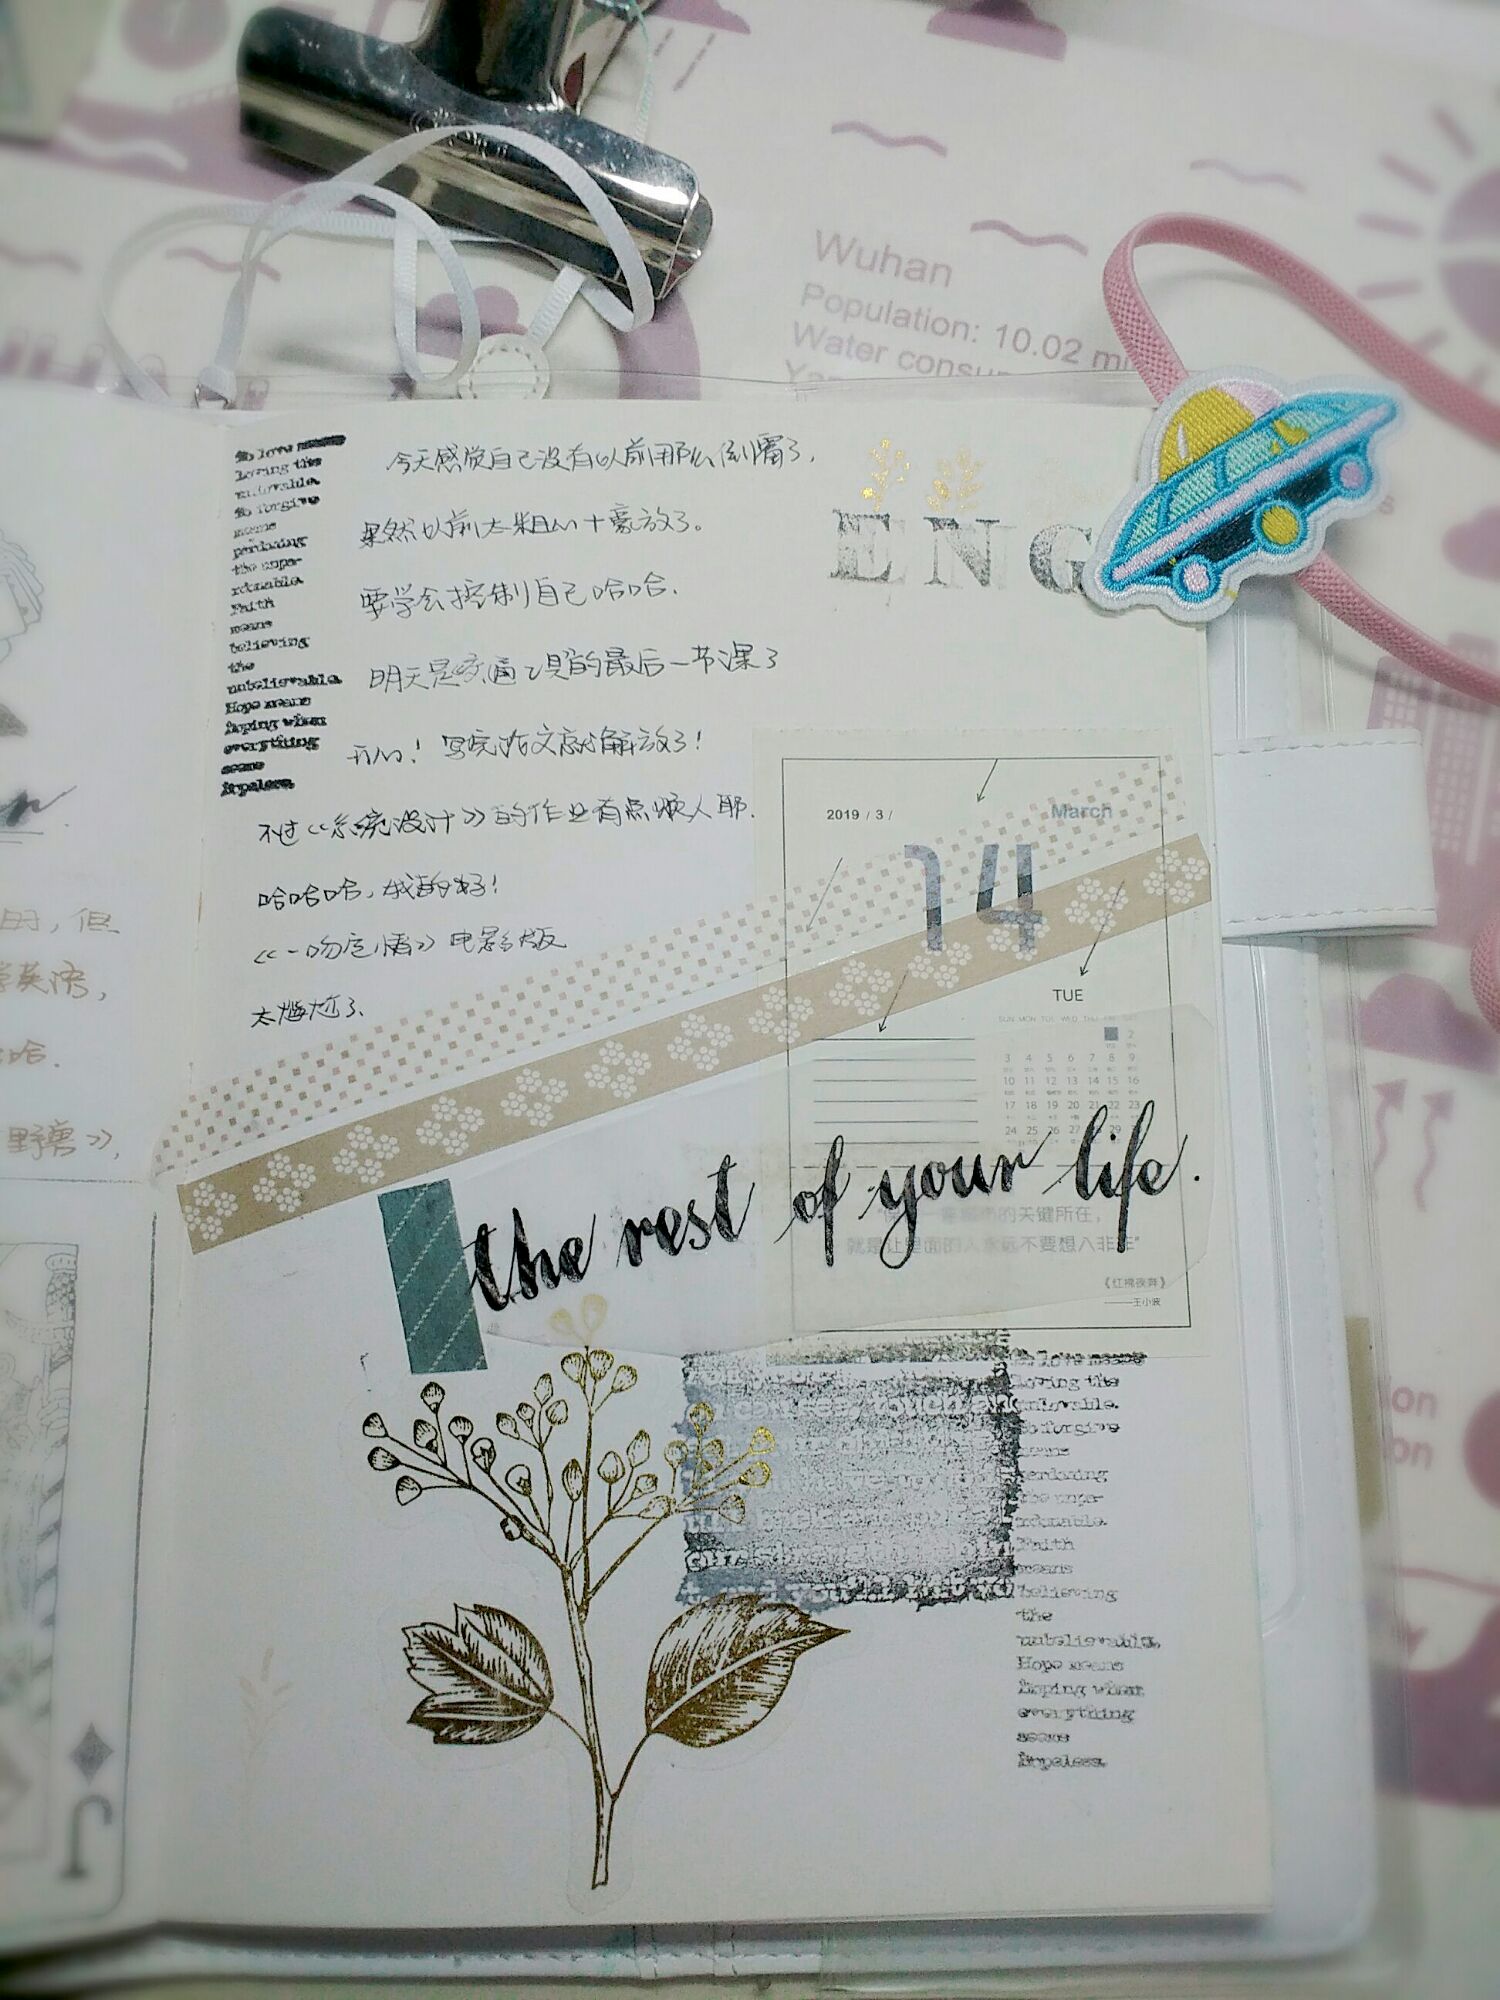 Wuhan
Population: 10.02 mi
Water consu
So love means
loving the
unlovable.
To forgive
means
pardoning
the unpa-
rdonable.
Faith
means
believing
the
unbelievable.
Hope means
hoping when
everything
seems
hopeless.
今天感觉自己没有以前那么倒霉了,
果然以前太粗心+豪放了。
要学会控制自己哈哈.
明天是交通工具的最后一节课了
开心! 写完论文就解放了!
不过《系统设计》的作业有点烦人耶.
哈哈哈,我的妈!
《一吻定情》电影版
太尴尬了.
ENG
2019 / 3 /
March
14
TUE
SUN MON TUE WED THU FRI SAT
2
3 4 5 6 7 8 9
10 11 12 13 14 15 16
17 18 19 20 21 22 23
24 25 26 27 28 29
the rest of your life.
的关键所在,
就是让里面的人永远不要想入非非"
《红拂夜奔》
——王小波
love means
loving the
unlovable.
To forgive
means
pardoning
the unpa-
rdonable.
Faith
means
believing
the
unbelievable.
Hope means
hoping when
everything
seems
hopeless.
时, 但
学英语,
哈.
野兽》,
J